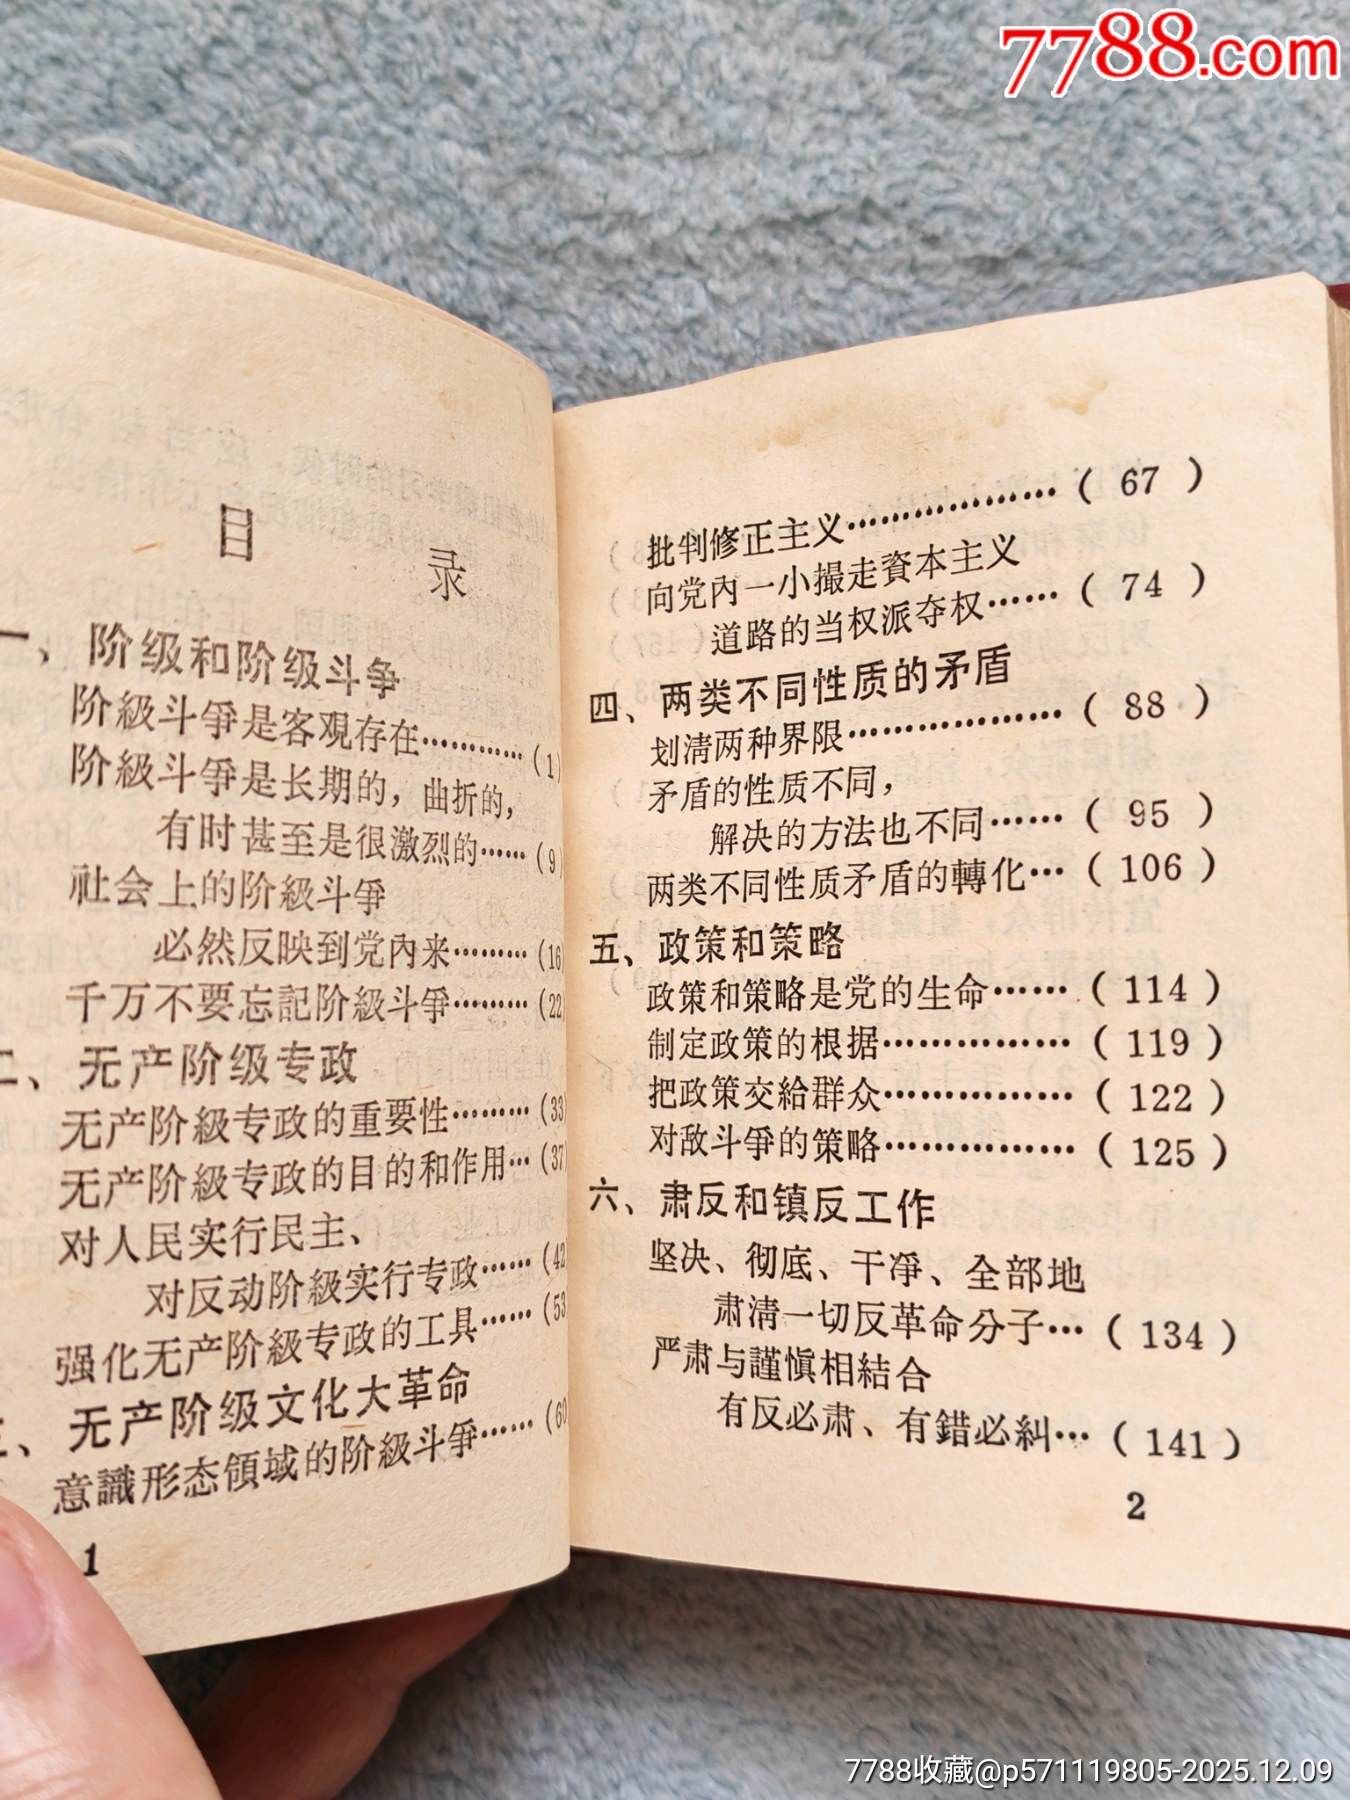 7788.com
目录
一、阶级和阶级斗争
阶級斗爭是客观存在…………(1)
阶級斗爭是长期的，曲折的，
有时甚至是很激烈的……(9)
社会上的阶級斗爭
必然反映到党內来………(16
千万不要忘記阶級斗爭………(22
二、无产阶级专政
无产阶級专政的重要性………(33
无产阶級专政的目的和作用…(37
对人民实行民主、
对反动阶級实行专政……(42
强化无产阶級专政的工具……(53
三、无产阶级文化大革命
意識形态領域的阶級斗爭……(60
1
批判修正主义………………( 67 )
向党內一小撮走資本主义
道路的当权派夺权……( 74 )
四、两类不同性质的矛盾
划清两种界限………………( 88 )
矛盾的性质不同，
解决的方法也不同……( 95 )
两类不同性质矛盾的轉化…( 106 )
五、政策和策略
政策和策略是党的生命……( 114 )
制定政策的根据……………( 119 )
把政策交給群众……………( 122 )
对敌斗爭的策略……………( 125 )
六、肃反和镇反工作
坚决、彻底、干凈、全部地
肃清一切反革命分子…( 134 )
严肃与謹愼相結合
有反必肃、有錯必糾…( 141 )
2
7788收藏@p571119805-2025.12.09